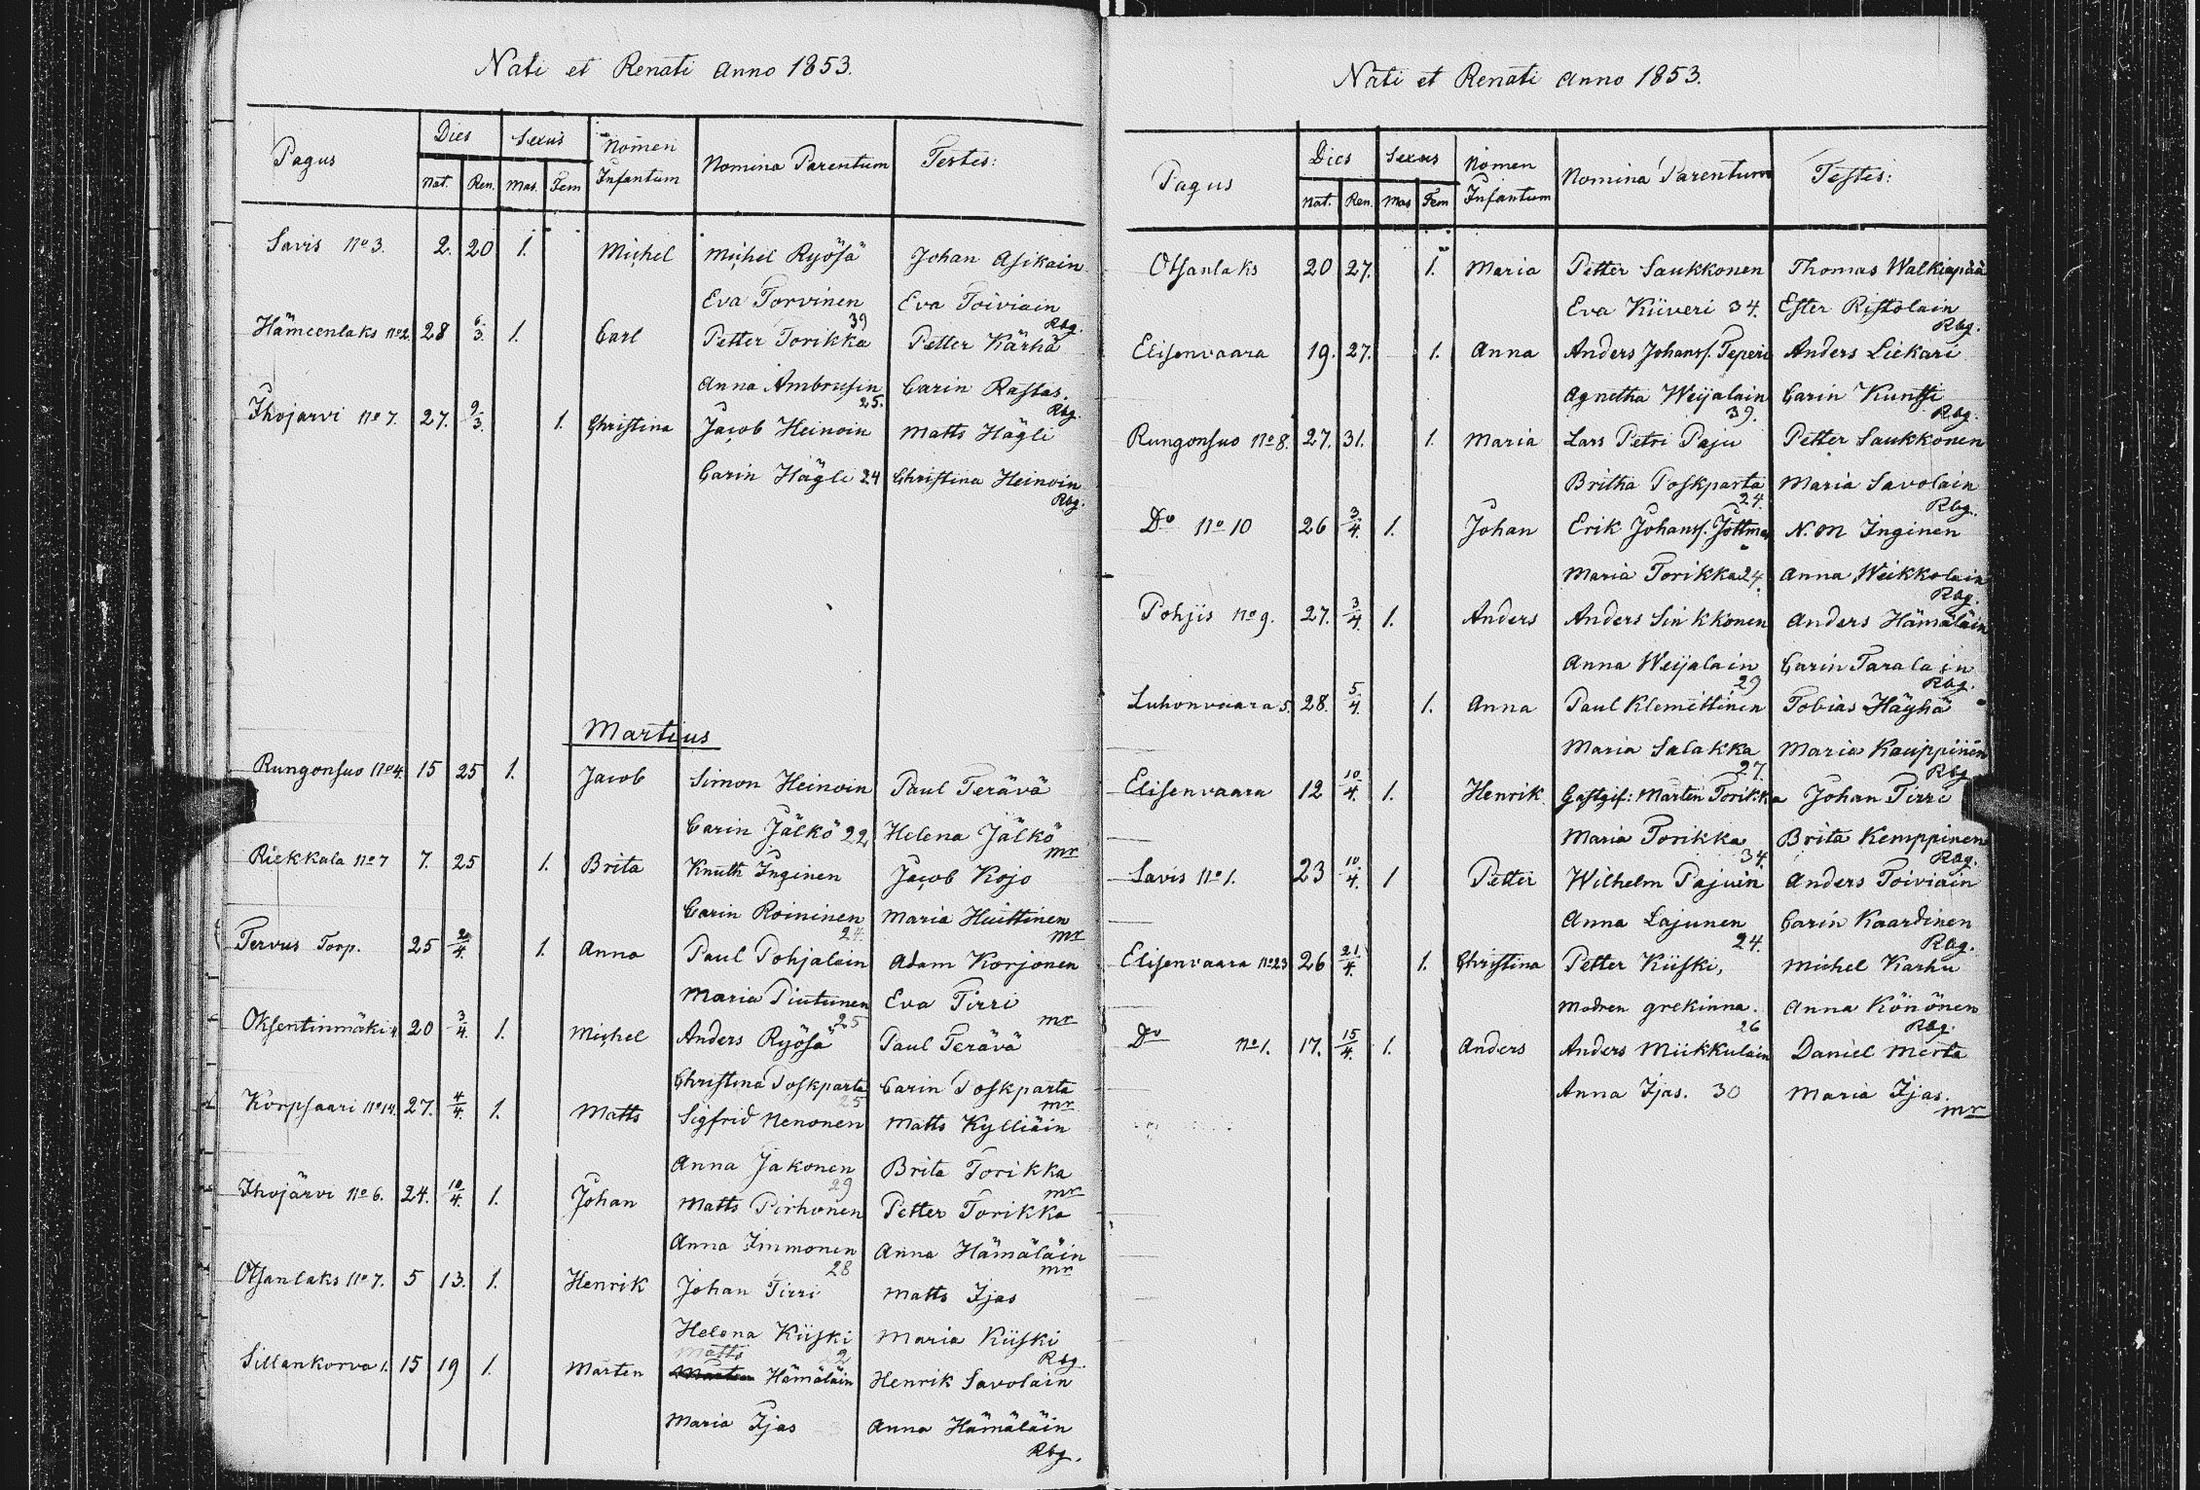 Nati et Renati Anno 1853.
Pagus Dies Sexus Nomen Infantum Nomina Parentum Testes:
Nat. Ren. Mas. Fem
Savis No 3. 2. 20 1. Michel Michel Ryösä Johan Asikain
Eva Torvinen 39 Eva Toiviain Rbg.
Hämeenlaks No 2. 28 6/3. 1. Carl Petter Torikka Petter Kärhä
Anna Ambrusin 25. Carin Rastas. Rbg.
Ihojarvi No 7. 27. 9/3. 1. Christina Jacob Heinoin Matts Hägli
Carin Hägli 24 Christina Heinoin Rbg.
Martius
Rungonsuo No 4. 15 25 1. Jacob Simon Heinoin Paul Terävä
Carin Jälkö 22. Helena Jälkö mr
Riekkala No 7 7. 25 1. Brita Knuth Inginen Jacob Kojo
Carin Roininen 24. Maria Huittinen mr
Tervus Torp. 25 2/4. 1. Anna Paul Pohjalain Adam Korjonen
Maria Piutunen 25 Eva Tirri mr
Oksentinmäki 4. 20 3/4. 1. Michel Anders Ryösä Paul Terävä
Christina Poskparta 25 Carin Poskparta mr
Korpsaari No 14. 27. 4/4. 1. Matts Sigfrid Nenonen Matts Kylliäin
Anna Jakonen 29 Brita Torikka mr
Ihojärvi No 6. 24. 10/4. 1. Johan Matts Pirhonen Petter Torikka
Anna Immonen 28 Anna Hämäläin mr
Otsanlaks No 7. 5 13. 1. Henrik Johan Tirri Matts Ijas
Helena Kiiski 22 Maria Kiiski Rbg.
Matts
Sillankorva 1. 15 19 1. Mårten Mårten Hämäläin Henrik Savolain
Maria Ijas Anna Hämäläin Rbg.
Nati et Renati Anno 1853.
Pagus Dies Sexus Nomen Infantum Nomina Parentum Testes:
Nat. Ren. Mas Fem
Otsanlaks 20 27. 1. Maria Petter Saukkonen Thomas Walkiapää
Eva Kiiveri 34. Ester Ristolain Rbg.
Elisenvaara 19. 27. 1. Anna Anders Johans. Teperi Anders Liekari
Agnetha Weijalain 39. Carin Kuntsi Rbg.
Rungonsuo No 8. 27. 31. 1. Maria Lars Petri Paju Petter Saukkonen
Britha Poskparta 24. Maria Savolain Rbg.
Do No 10 26 3/4. 1. Johan Erik Johans. Jottman N. M Inginen
Maria Torikka 24. Anna Weikkolain Rbg.
Pohjis No 9. 27. 3/4. 1. Anders Anders Sinkkonen Anders Hämäläin
Anna Weijalain 29 Carin Taralain Rbg.
Luhonvaara 5. 28. 5/4. 1. Anna Paul Klemettinen Tobias Häyhä
Maria Salakka 27. Maria Kauppinen Rbg
Elisenvaara 12 10/4. 1. Henrik Gästgif: Mårten Torikka Johan Tirri
Maria Torikka 34. Brita Kemppinen Rbg.
Savis No 1. 23 10/4. 1 Petter Wilhelm Pajuin Anders Toiviain
Anna Lajunen 24. Carin Kaardinen Rbg.
Elisenvaara No 23 26 21/4. 1. Christina Petter Kiiski, Michel Karhu
Modren grekinna. 26 Anna Könönen Rbg.
Do No 1. 17. 15/4. 1. Anders Anders Miikkulain Daniel Merta
Anna Ijas. 30 Maria Ijas. mr